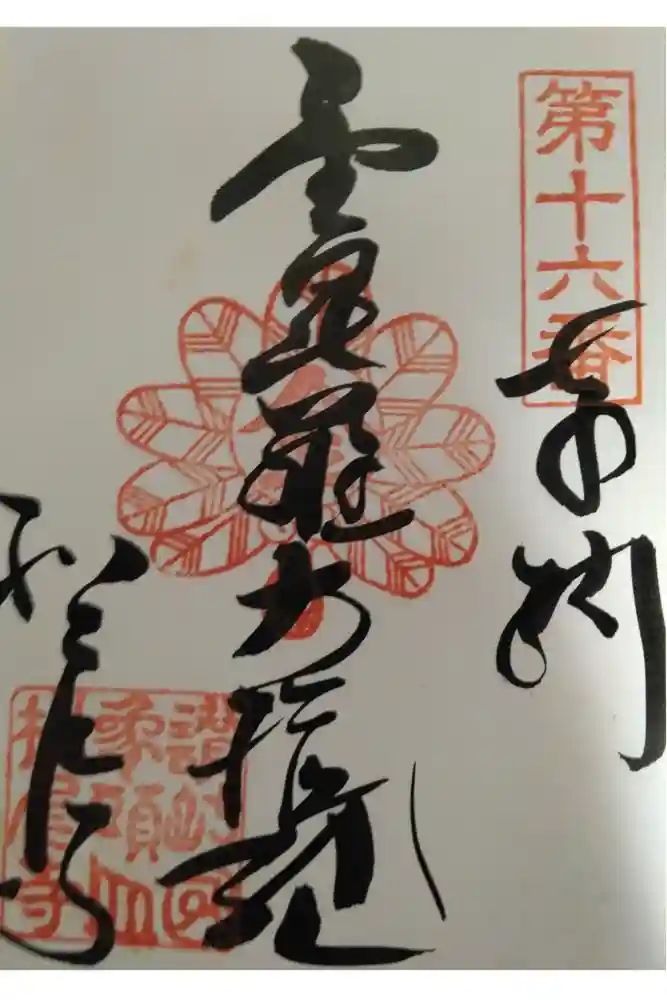 第十六番
奉拝
金毘羅大権現
松尾寺
讃岐國
象頭山
松尾寺